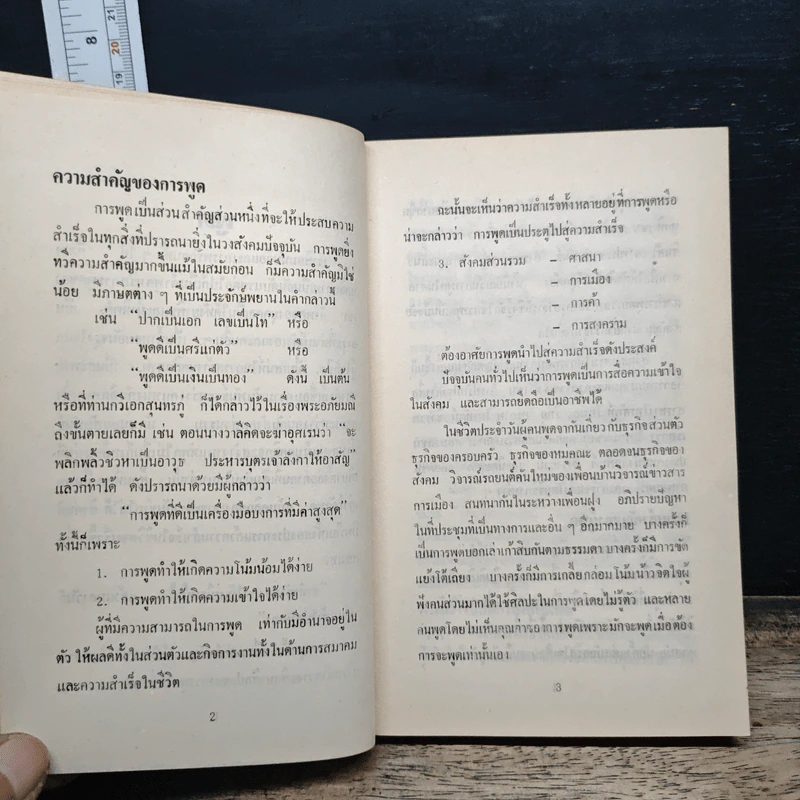 8
21
20
19
ความสำคัญของการพูด
การพูดเป็นส่วนสำคัญส่วนหนึ่งที่จะให้ประสบความ
สำเร็จในทุกสิ่งที่ปรารถนายิ่งในวงสังคมปัจจุบัน การพูดยิ่ง
ทวีความสำคัญมากขึ้นแม้ในสมัยก่อน ก็มีความสำคัญมิใช่
น้อย มีภาษิตต่าง ๆ ที่เป็นประจักษ์พยานในคำกล่าวนี้
เช่น "ปากเป็นเอก เลขเป็นโท" หรือ
"พูดดีเป็นศรีแก่ตัว" หรือ
"พูดดีเป็นเงินเป็นทอง" ดังนี้ เป็นต้น
หรือที่ท่านกวีเอกสุนทรภู่ ก็ได้กล่าวไว้ในเรื่องพระอภัยมณี
ถึงขั้นตายเลยก็มี เช่น ตอนนางวาลีคิดจะฆ่าอุศเรนว่า "จะ
พลิกพลิ้วชิวหาเป็นอาวุธ ประหารบุตรเจ้าลังกาให้อาสัญ"
แล้วก็ทำได้ ดังปรารถนาด้วยมีผู้กล่าวว่า
"การพูดที่ดีเป็นเครื่องมือบงการที่มีค่าสูงสุด"
ทั้งนี้ก็เพราะ
1. การพูดทำให้เกิดความโน้มน้อมได้ง่าย
2. การพูดทำให้เกิดความเข้าใจได้ง่าย
ผู้ที่มีความสามารถในการพูด เท่ากับมีอำนาจอยู่ใน
ตัว ให้ผลดีทั้งในส่วนตัวและกิจการงานทั้งในด้านการสมาคม
และความสำเร็จในชีวิต
2
ฉะนั้นจะเห็นว่าความสำเร็จทั้งหลายอยู่ที่การพูดหรือ
น่าจะกล่าวว่า การพูดเป็นประตูไปสู่ความสำเร็จ
3. สังคมส่วนรวม – ศาสนา
– การเมือง
– การค้า
– การสงคราม
ต้องอาศัยการพูดนำไปสู่ความสำเร็จดังประสงค์
ปัจจุบันคนทั่วไปเห็นว่าการพูดเป็นการสื่อความเข้าใจ
ในสังคม และสามารถยึดถือเป็นอาชีพได้
ในชีวิตประจำวันผู้คนพูดจากันเกี่ยวกับธุรกิจส่วนตัว
ธุรกิจของครอบครัว ธุรกิจของหมู่คณะ ตลอดจนธุรกิจของ
สังคม วิจารณ์รถยนต์คันใหม่ของเพื่อนบ้านวิจารณ์ข่าวสาร
การเมือง สนทนากันในระหว่างเพื่อนฝูง อภิปรายปัญหา
ในที่ประชุมที่เป็นทางการและอื่น ๆ อีกมากมาย บางครั้งก็
เป็นการพูดบอกเล่าเก้าสิบกันตามธรรมดา บางครั้งก็มีการขัด
แย้งโต้เถียง บางครั้งก็มีการเกลี้ยกล่อมโน้มน้าวจิตใจผู้
ฟังคนส่วนมากได้ใช้ศิลปะในการพูดโดยไม่รู้ตัว และหลาย
คนพูดโดยไม่เห็นคุณค่าของการพูดเพราะมักจะพูดเมื่อต้อง
การจะพูดเท่านั้นเอง
3